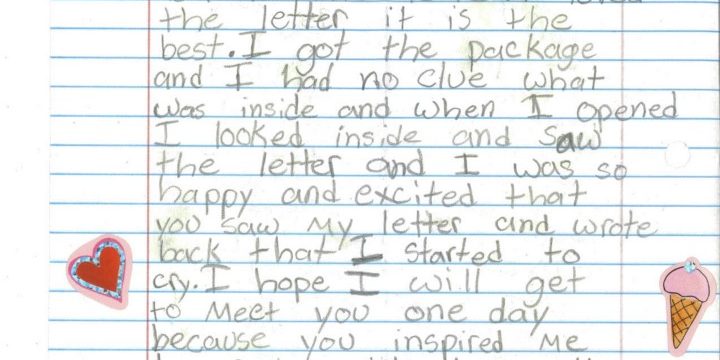 the letter it is the
best. I got the package
and I had no clue what
was inside and when I opened
I looked inside and saw
the letter and I was so
happy and excited that
you saw my letter and wrote
back that I started to
cry. I hope I will get
to meet you one day
because you inspired me